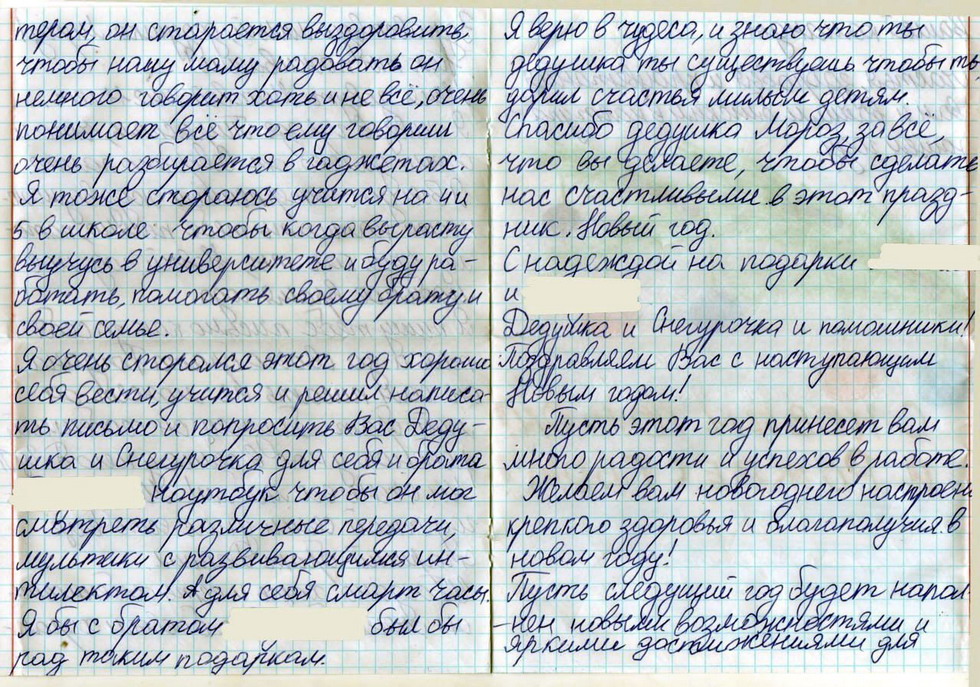 терам, он старается выздоровить,
чтобы нашу маму радовать он
немного говорит хоть и не всё, очень
понимает всё что ему говориш
очень разбирается в гаджетах.
Я тоже стораюсь учится на 4 и
5 в школе чтобы когда вырасту
выучусь в университете и буду ра-
ботать, помогать своему брату и
своей семье.
Я очень сторался этот год хорошо
себя вести, учится и решил написа-
ть письмо и попросить Вас Деду-
шка и Снегурочка для себя и брата
ноутбук чтобы он мог
смотреть различные передачи,
мультики с развивающимся ин-
тилектом. А для себя смарт часы.
Я бы с братом был бы
рад таким подаркам.
Я верю в чудеса, и знаю что ты
дедушка ты существуешь чтобы ты
дарил счастья милым детям.
Спасибо дедушка Мороз, за всё,
что вы делаете, чтобы сделать
нас счастливыми в этот празд-
ник. Новый год.
С надеждой на подарки
и
Дедушка и Снегурочка и помошники!
Поздравляем Вас с наступающим
Новым годом!
Пусть этот год принесет вам
много радости и успехов в работе.
Желаем вам новогоднего настроени
крепкого здоровья и благаполучия в
новом году!
Пусть следущий год будет напол
-нен новыми возможностями и
яркими достижениями для